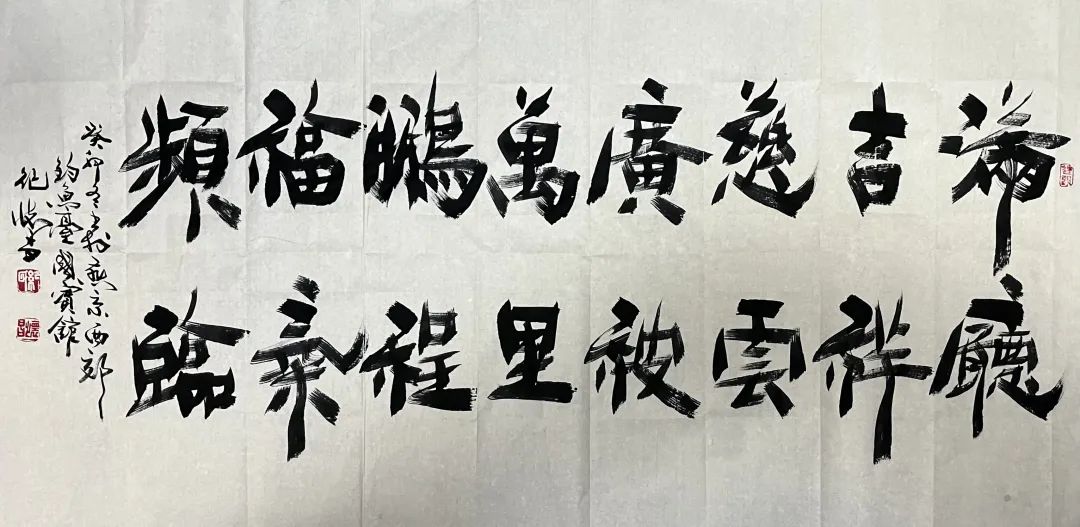 滿廳
吉祥
慈雲
廣被
萬里
鵬程
福氣
頻臨
癸卯冬於燕京西郊
釣魚臺國賓館
紀懷昌